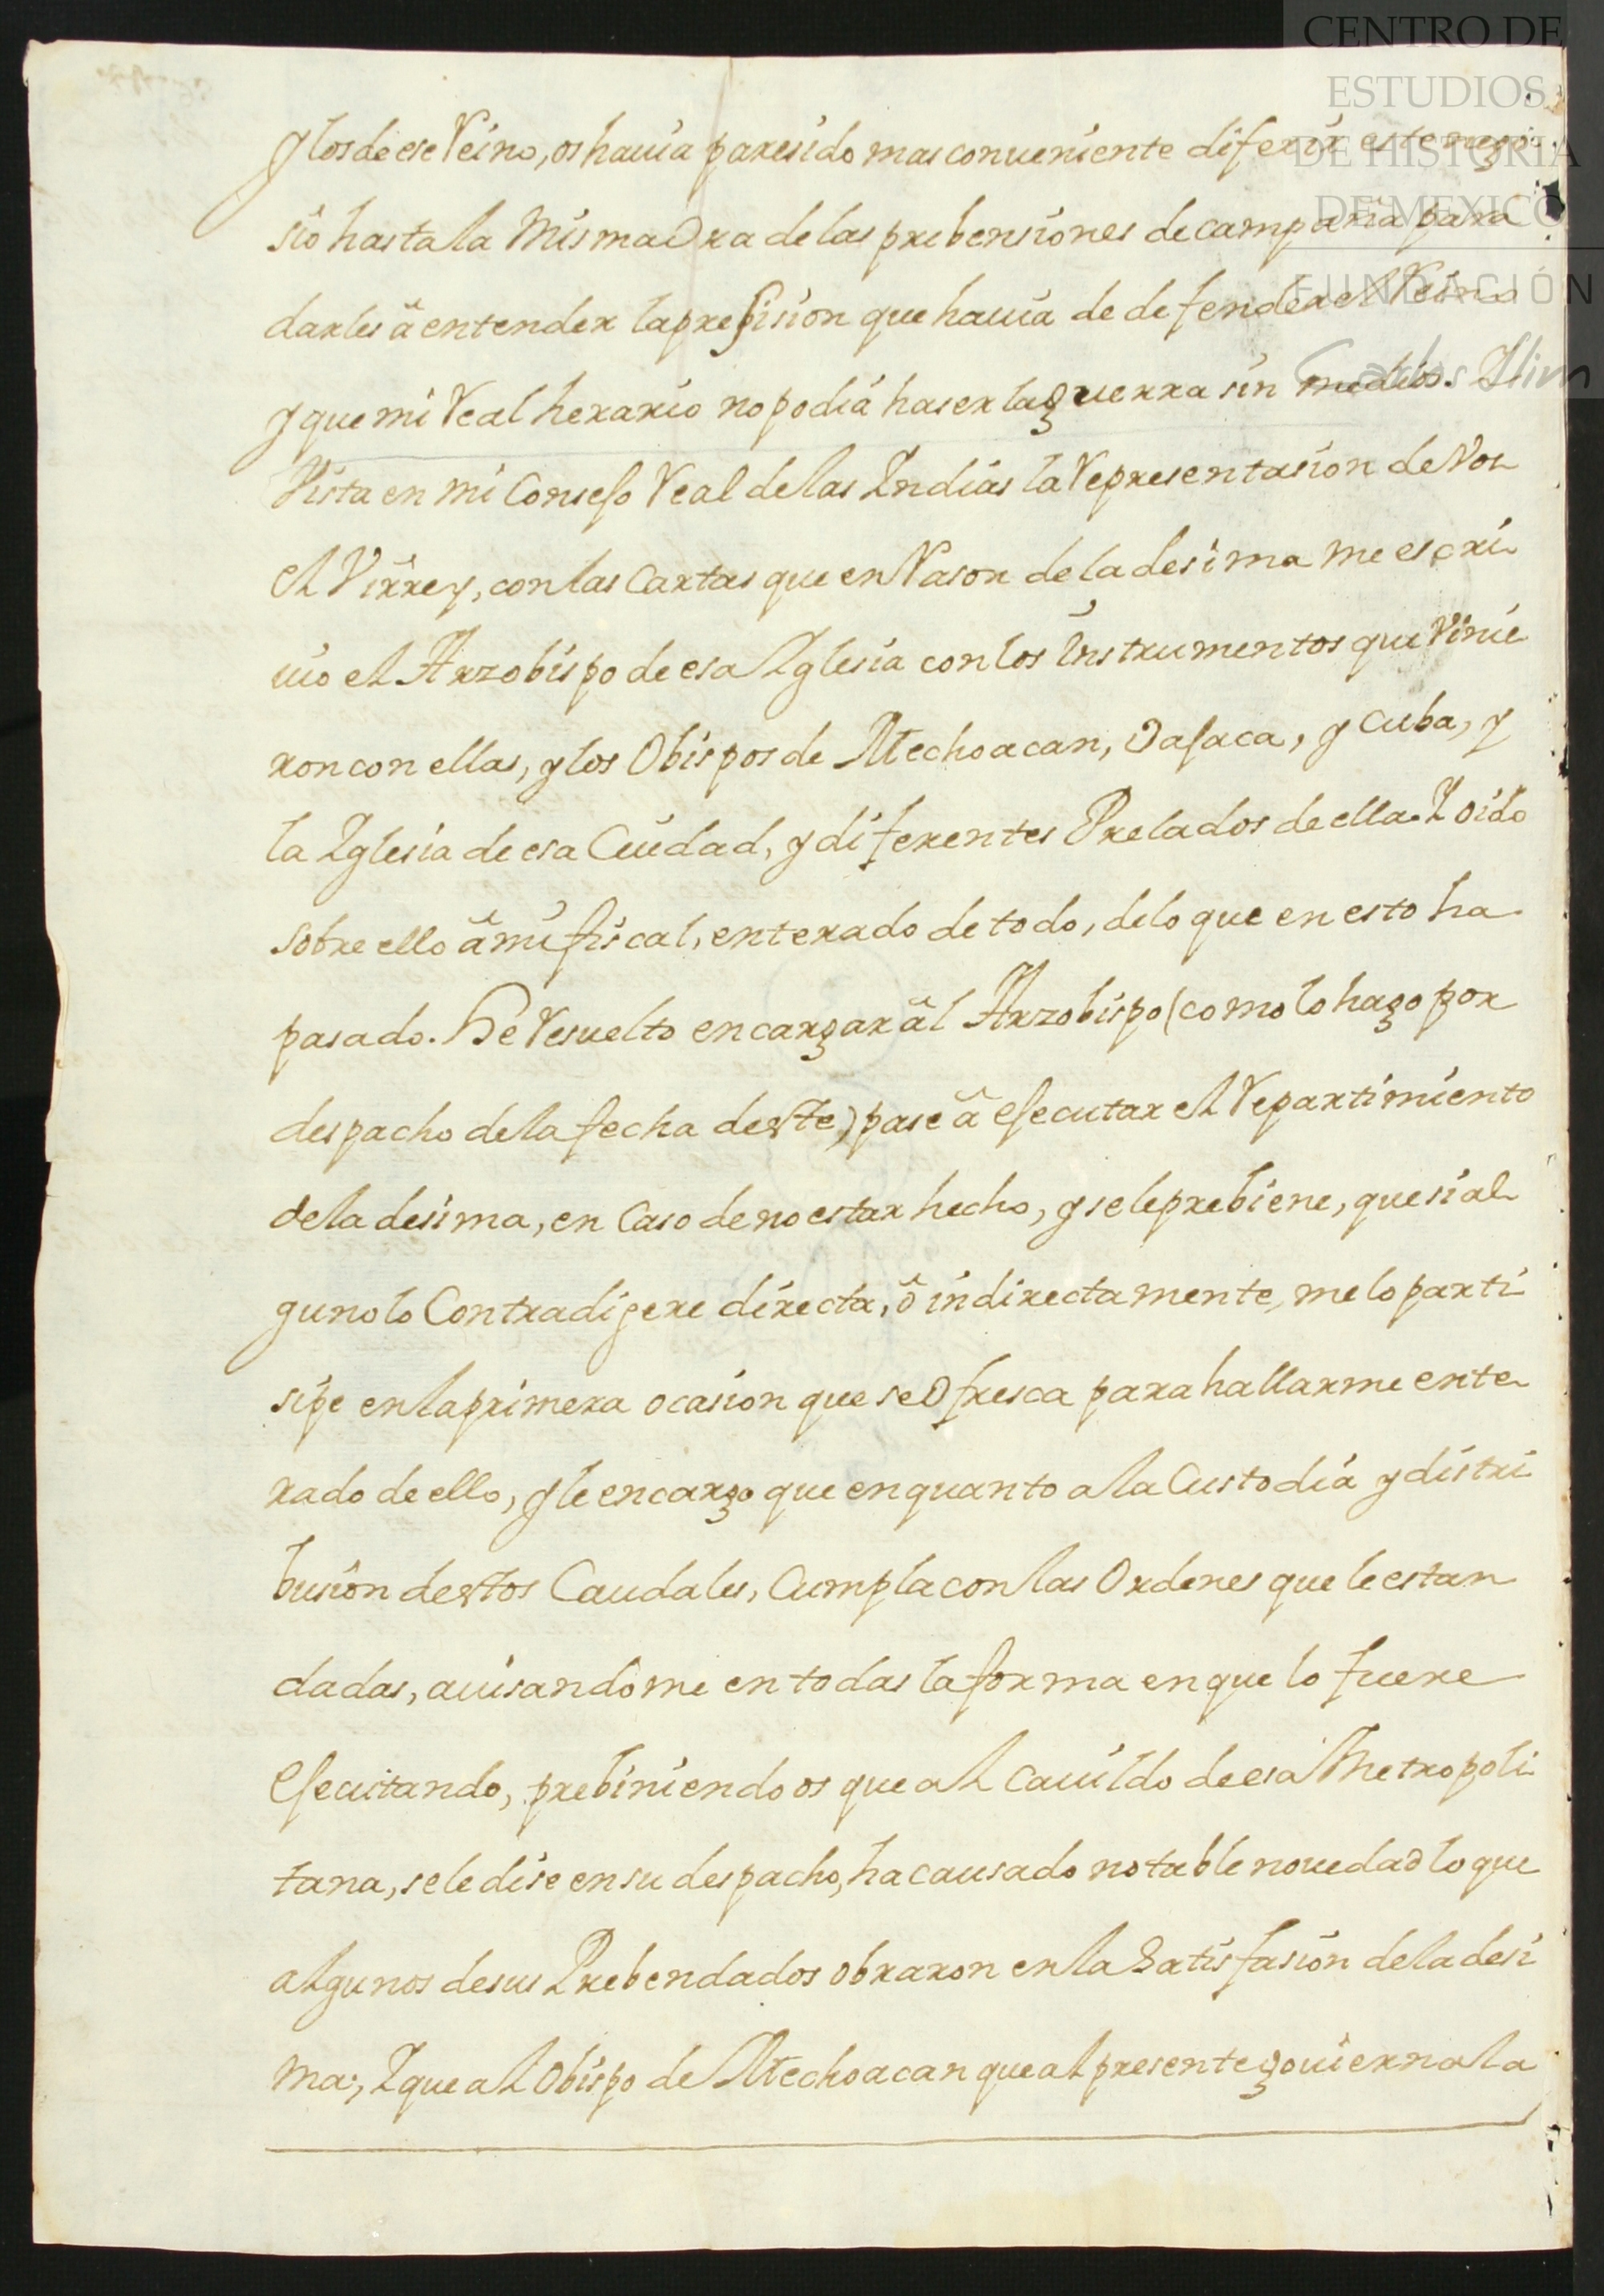 CENTRO DE
ESTUDIOS
DE HISTORIA
DE MEXICO
FUNDACIÓN
Carlos Slim
y los de ese Reino, os hauia paresido mas conueniente diferir este nego
sio hasta la misma Ora de las prebensiones de campaña para
darles â entender la presision que hauia de defender el Reino
y que mi Real herario no podia haser la guerra sin medios. Y
Vista en mi Consejo Real de las Indias la Representasion de Vos
el Virrey, con las Cartas que en Rason de la desima me escri
uio el Arzobispo de esa Iglesia con los instrumentos que Vinie
ron con ellas, y los Obispos de Mechoacan, Oajaca, y Cuba, y
la Iglesia de esa Ciudad, y diferentes Prelados de ella. Y oido
sobre ello â mi fiscal, enterado de todo, de lo que en esto ha
pasado. He Resuelto encargar âl Arzobispo (como lo hago por
despacho de la fecha deste) pase â ejecutar el Repartimiento
de la desima, en Caso de no estar hecho, y se le prebiene, que si al
guno lo Contradigere directa, ô indirectamente, me lo parti
sipe en la primera ocasion que se Ofresca para hallarme ente
rado de ello, y le encargo que en quanto a la Custodia y distri
busion destos Caudales, Cumpla con las Ordenes que le estan
dadas, auisandome en todas la forma en que lo fuere
ejecutando, prebiniendoos que al Cauildo de esa Metropoli
tana, se le dise en su despacho, ha causado notable nouedad lo que
algunos de sus Prebendados obraron en la Satisfasion de la desi
ma; Y que al Obispo de Mechoacan que al presente gouierna la